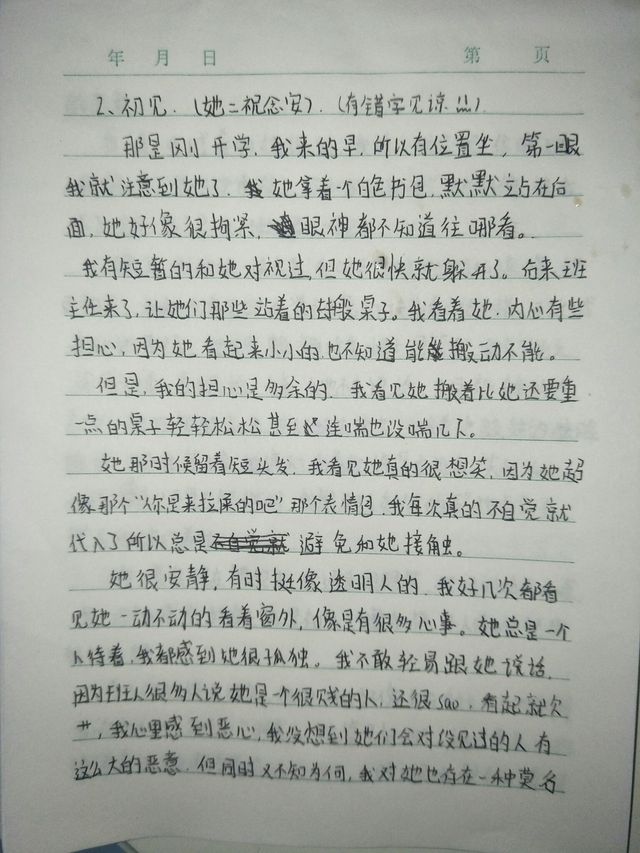 年 月 日 第 页
2、初见.（她=祝念安）.（有错字见谅!!!）
那是刚开学,我来的早,所以有位置坐，第一眼
我就注意到她了.她拿着一个白色书包,默默立占在后
面,她好像很拘紧,眼神都不知道往哪看。
我有短暂的和她对视过,但她很快就躲开了。后来班
主任来了,让她们那些站着的去搬桌子。我看着她.内心有些
担心,因为她看起来小小的,也不知道能搬动不能。
但是,我的担心是多余的.我看见她搬着比她还要重
一点的桌子轻轻松松甚至连喘也没喘几下。
她那时候留着短头发,我看见她真的很想笑,因为她超
像那个"你是来拉屎的吧"那个表情包,我每次真的不自觉就
代入了所以总是不自觉就避免和她接触。
她很安静,有时挺像透明人的.我好几次都看
见她一动不动的看着窗外,像是有很多心事。她总是一个
人待着,我都感到她很孤独。我不敢轻易跟她说话.
因为班人很多人说她是一个很贱的人,还很sao,看起就欠
艹,我心里感到恶心,我没想到她们会对没见过的人有
这么大的恶意.但同时又不知为何,我对她也存在一种莫名